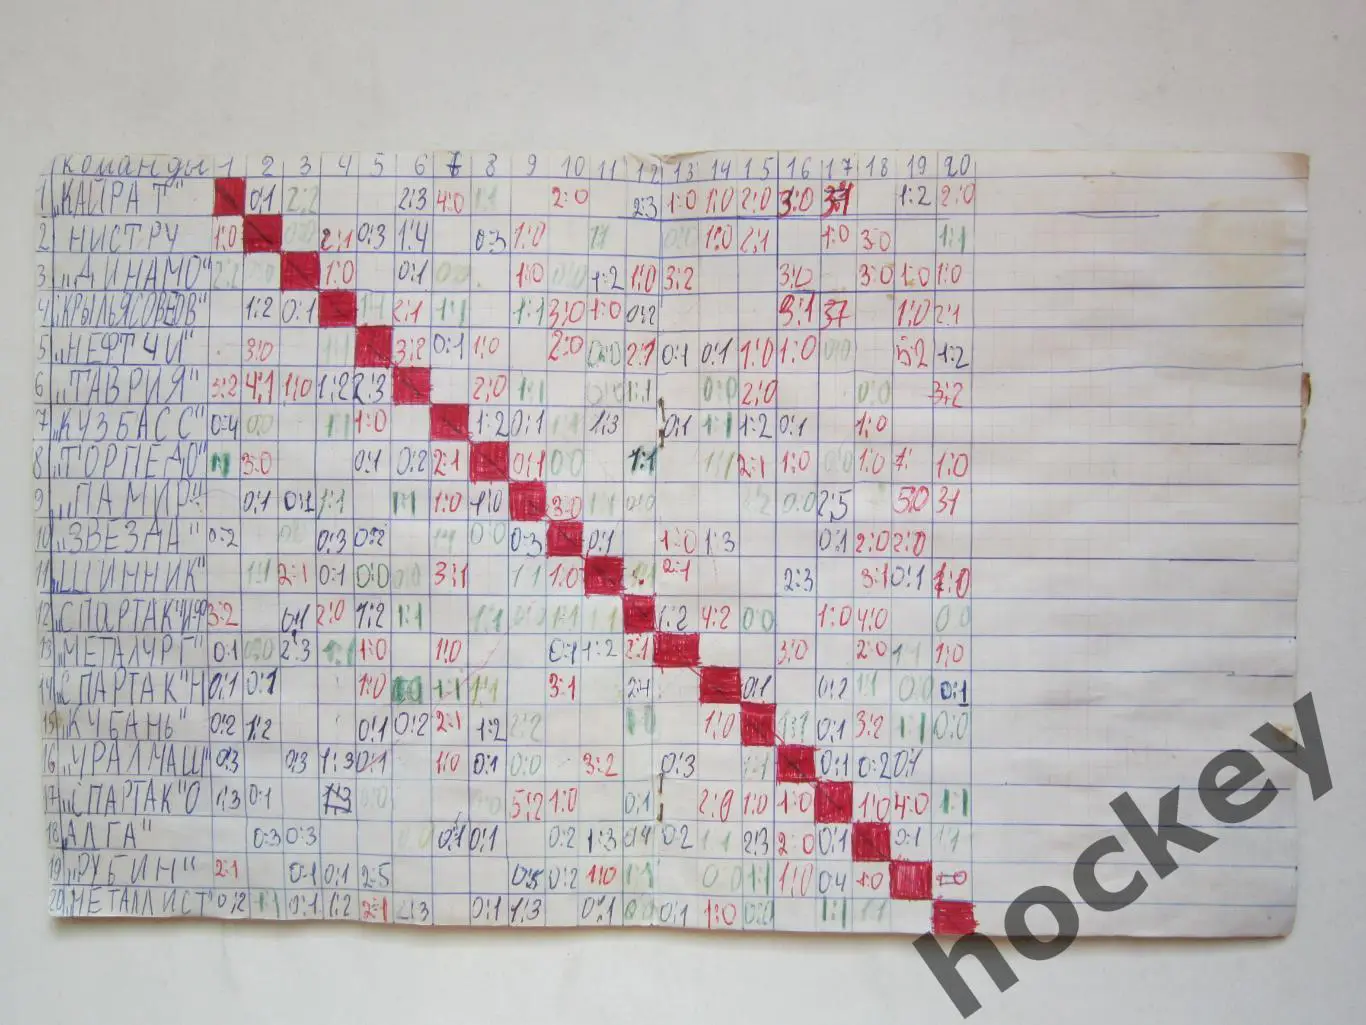 команды 1 2 3 4 5 6 7 8 9 10 11 12 13 14 15 16 17 18 19 20
1 „КАЙРАТ" 0:1 2:2 2:3 4:0 1:1 2:0 2:3 1:0 1:0 2:0 3:0 3:1 1:2 2:0
2 НИСТРУ 1:0 0:0 2:1 0:3 1:4 0:3 1:0 1:1 0:0 1:0 2:1 1:0 3:0 1:1
3 „ДИНАМО" 2:2 0:0 1:0 0:1 0:0 1:0 0:0 1:2 1:0 3:2 3:0 3:0 1:0 1:0
4 „КРЫЛЬЯСОВЕТОВ" 1:2 0:1 1:1 2:1 1:1 1:1 3:0 1:0 0:2 3:1 1:0 2:1
5 „НЕФТЧИ" 3:0 1:1 3:2 0:1 1:0 2:0 0:0 2:1 0:1 0:1 1:0 1:0 0:0 5:2 1:2
6 „ТАВРИЯ" 3:2 4:1 1:0 1:2 2:3 2:0 1:1 0:0 1:1 0:0 2:0 0:0 3:2
7 „КУЗБАСС" 0:4 0:0 1:1 1:0 1:2 0:1 1:1 1:3 0:1 1:1 1:2 0:1 1:0
8 „ТОРПЕДО" 1:1 3:0 0:1 0:2 2:1 0:1 0:0 1:1 1:1 2:1 1:0 0:0 1:0 1:0
9 „ПАМИР" 0:1 0:1 1:1 1:1 1:0 1:0 3:0 1:1 0:0 2:2 0:0 2:5 5:0 3:1
10 „ЗВЕЗДА" 0:2 0:0 0:3 0:2 1:1 0:0 0:3 0:1 1:0 1:3 0:1 2:0 2:0
11 „ШИННИК" 1:1 2:1 0:1 0:0 0:0 3:1 1:1 1:0 1:1 2:1 2:3 3:1 0:1 1:0
12 „СПАРТАК"И-Ф 3:2 0:1 2:0 1:2 1:1 1:1 0:0 1:1 1:1 1:2 4:2 0:0 1:0 4:0 0:0
13 „МЕТАЛУРГ" 0:1 0:0 2:3 1:1 1:0 1:0 0:1 1:2 2:1 3:0 2:0 1:1 1:0
14 „СПАРТАК"Н 0:1 0:1 1:0 0:0 1:1 1:1 3:1 2:4 0:1 0:2 1:1 0:0 0:1
15 „КУБАНЬ" 0:2 1:2 0:1 0:2 2:1 1:2 2:2 1:0 1:1 0:1 3:2 1:1 0:0
16 „УРАЛМАШ" 0:3 0:3 1:3 0:1 1:0 0:1 0:0 3:2 0:3 1:1 0:1 0:2 0:1
17 „СПАРТАК"О 1:3 0:1 1:3 0:0 0:0 5:2 1:0 0:1 2:0 1:0 1:0 1:0 4:0 1:1
18 „АЛГА" 0:3 0:3 0:0 0:1 0:1 0:2 1:3 0:4 0:2 1:1 2:3 2:0 0:1 0:1 1:1
19 „РУБИН" 2:1 0:1 0:1 2:5 0:5 0:2 1:0 1:1 0:0 1:1 1:0 0:4 1:0 1:0
20 МЕТАЛЛИСТ 0:2 1:1 0:1 1:2 2:1 2:3 0:1 1:3 0:1 0:0 0:1 1:0 0:0 1:1 1:1
hockey